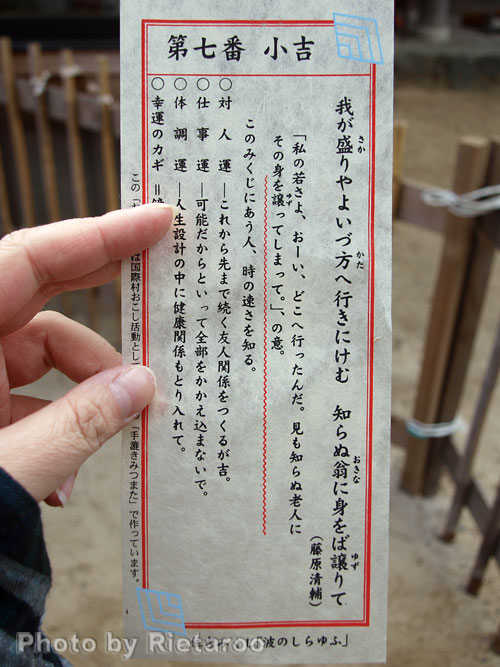 第七番 小吉
我が盛りやよいづ方へ行きにけむ 知らぬ翁に身をば譲りて
さか
かた
おきな
ゆず
(藤原清輔)
「私の若さよ、おーい、どこへ行ったんだ。見も知らぬ老人に
その身を譲ってしまって。」、の意。
ゆず
このみくじにあう人、時の速さを知る。
○対人運―これから先まで続く友人関係をつくるが吉。
○仕事運―可能だからといって全部をかかえ込まないで。
○体調運―人生設計の中に健康関係もとり入れて。
○幸運のカギ=
この
は国際村おこし活動とし
の「手漉きみつまた」で作っています。
みくじ「波のしらゆふ」
Photo by Rietaroo